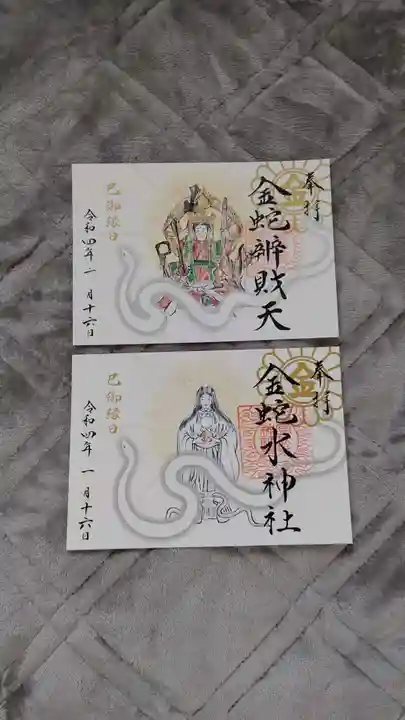 奉拝
金蛇辨財天
巳御縁日
令和四年一月十六日
奉拝
金蛇水神社
巳御縁日
令和四年一月十六日